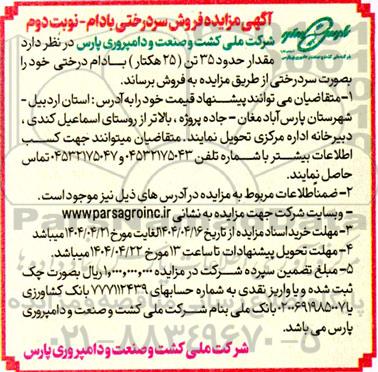 آگهی مزایده فروش سردرختی بادام - نوبت دوم
شرکت ملی کشت و صنعت و دامپروری پارس در نظر دارد
مقدار حدود ۳۵ تن (۲۵ هکتار) بادام درختی خود را
بصورت سردرختی از طریق مزایده به فروش برساند.
۱- متقاضیان می توانند پیشنهاد قیمت خود را به آدرس: استان اردبیل -
شهرستان پارس آباد مغان - جاده پروژه، بالاتر از روستای اسماعیل کندی،
دبیرخانه اداره مرکزی تحویل نمایند. متقاضیان میتوانند جهت کسب
اطلاعات بیشتر با شماره تلفن ۰۴۵۳۲۱۷۵۰۴۳ و ۰۴۵۳۲۱۷۵۰۴۷ تماس
حاصل نمایند.
۲- ضمناً اطلاعات مربوط به مزایده در آدرس های ذیل نیز موجود است.
- وبسایت شرکت جهت مزایده به نشانی www.parsagroinc.ir
۳- مهلت خرید اسناد مزایده از تاریخ ۱۴۰۴/۰۴/۱۶ لغایت مورخ ۱۴۰۴/۰۴/۲۱ میباشد
۴- مهلت تحویل پیشنهادات تا ساعت ۱۳ مورخ ۱۴۰۴/۰۴/۲۲ میباشد.
۵- مبلغ تضمین سپرده شرکت در مزایده ۱۰,۰۰۰,۰۰۰,۰۰۰ ریال بصورت چک
ثبت شده و یا واریز نقدی به شماره حسابهای ۷۷۷۱۲۴۳۹ بانک کشاورزی
یا ۲۰۰۶۹۱۹۸۵۰۰۷ بانک ملی بنام شرکت ملی کشت و صنعت و دامپروری
پارس می باشد.
شرکت ملی کشت و صنعت و دامپروری پارس
۰۲۱-۸۸۳۴۹۶۷۰-۵